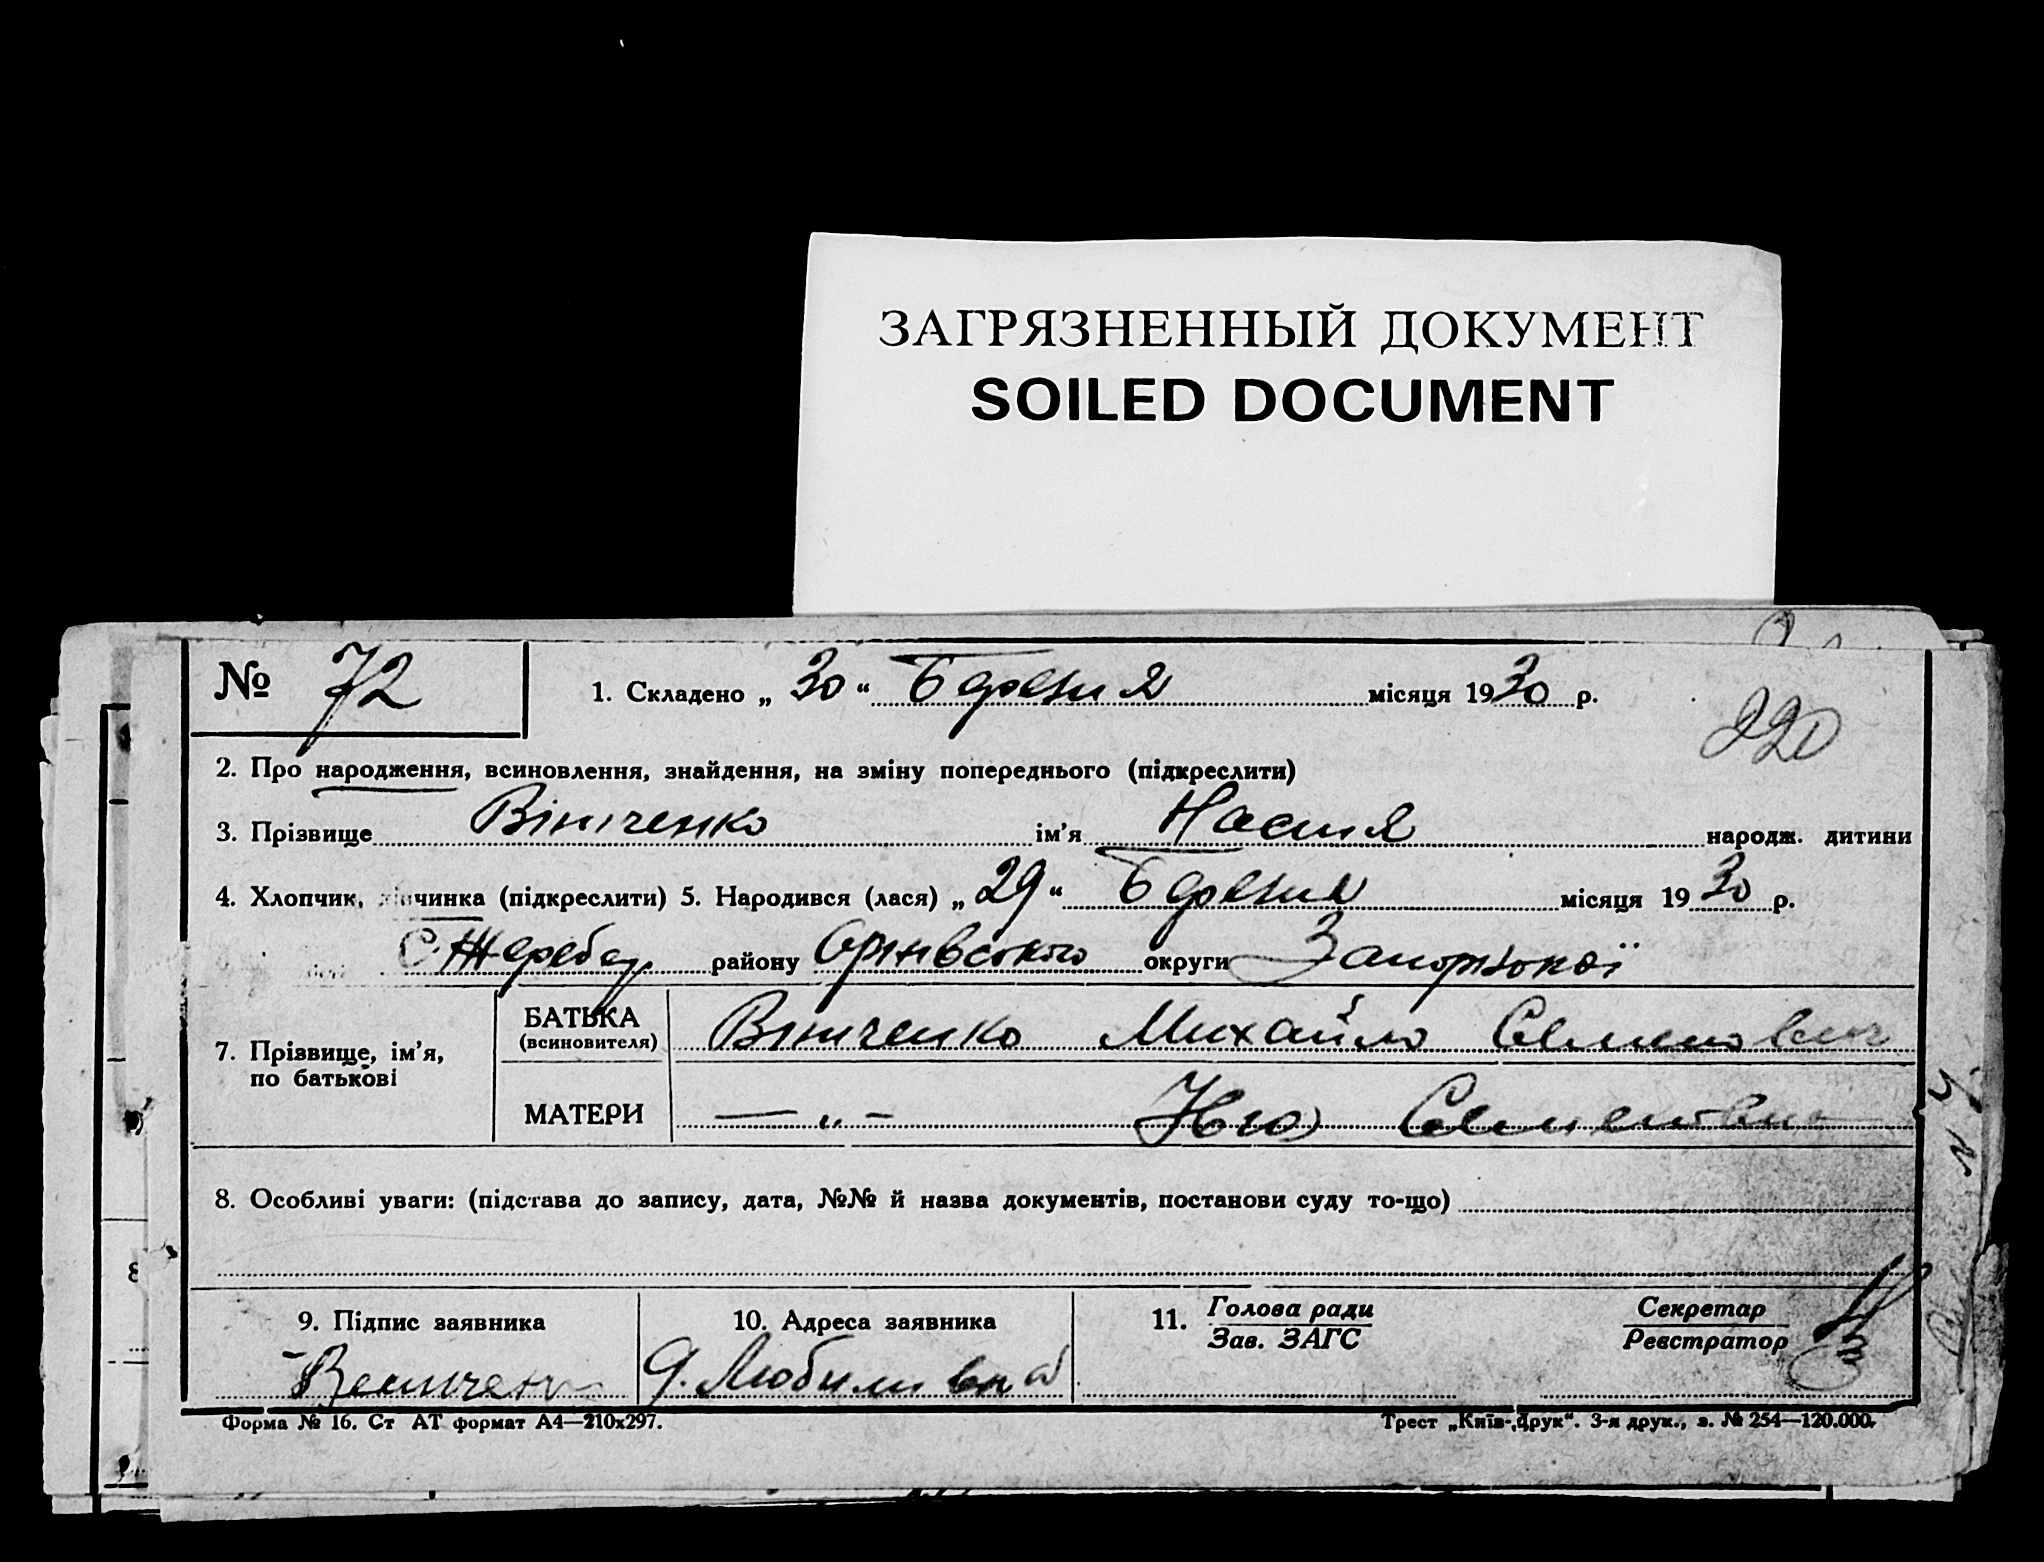 ЗАГРЯЗНЕННЫЙ ДОКУМЕНТ
SOILED DOCUMENT
№ 72
1. Складено „ 30 “ Березня місяця 1930 р.
220
2. Про народження, всиновлення, знайдення, на зміну попереднього (підкреслити)
3. Прізвище Віниченко ім’я Настя народж. дитини
4. Хлопчик, дівчинка (підкреслити) 5. Народився (лася) „ 29 “ Березня місяця 1930 р.
С. Жеребец району Оріхівського округи Запорізької
7. Прізвище, ім’я, по батькові
БАТЬКА (всиновителя) Віниченко Михайло Семенович
МАТЕРИ — „ — Семеновна
8. Особливі уваги: (підстава до запису, дата, №№ й назва документів, постанови суду то-що)
9. Підпис заявника
10. Адреса заявника
11. Голова ради
Зав. ЗАГС
Секретар
Реєстратор
Форма № 16. Ст АТ формат А4—210х297.
Трест „Київ-Друк“. 3-я друк., з. № 254—120.000.